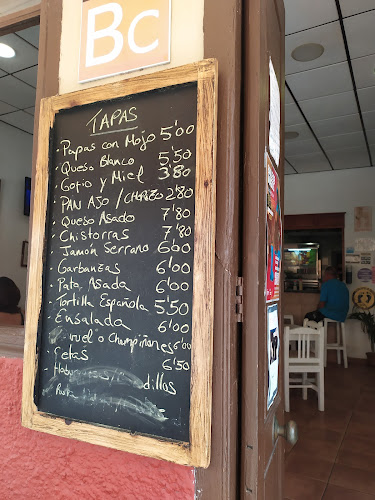 Bc
TAPAS
· Papas con Mojo 5'00
· Queso Blanco 5'50
· Gofio y Miel 3'80
· PAN AJO / CHORIZO 2'80
· Queso Asado 7'80
· Chistorras 7'80
· Jamón Serrano 6'00
· Garbanzas 6'00
· Pata Asada 6'00
· Tortilla Española 5'50
· Ensalada 6'00
o Champiñones 6'00
Setas 6'50